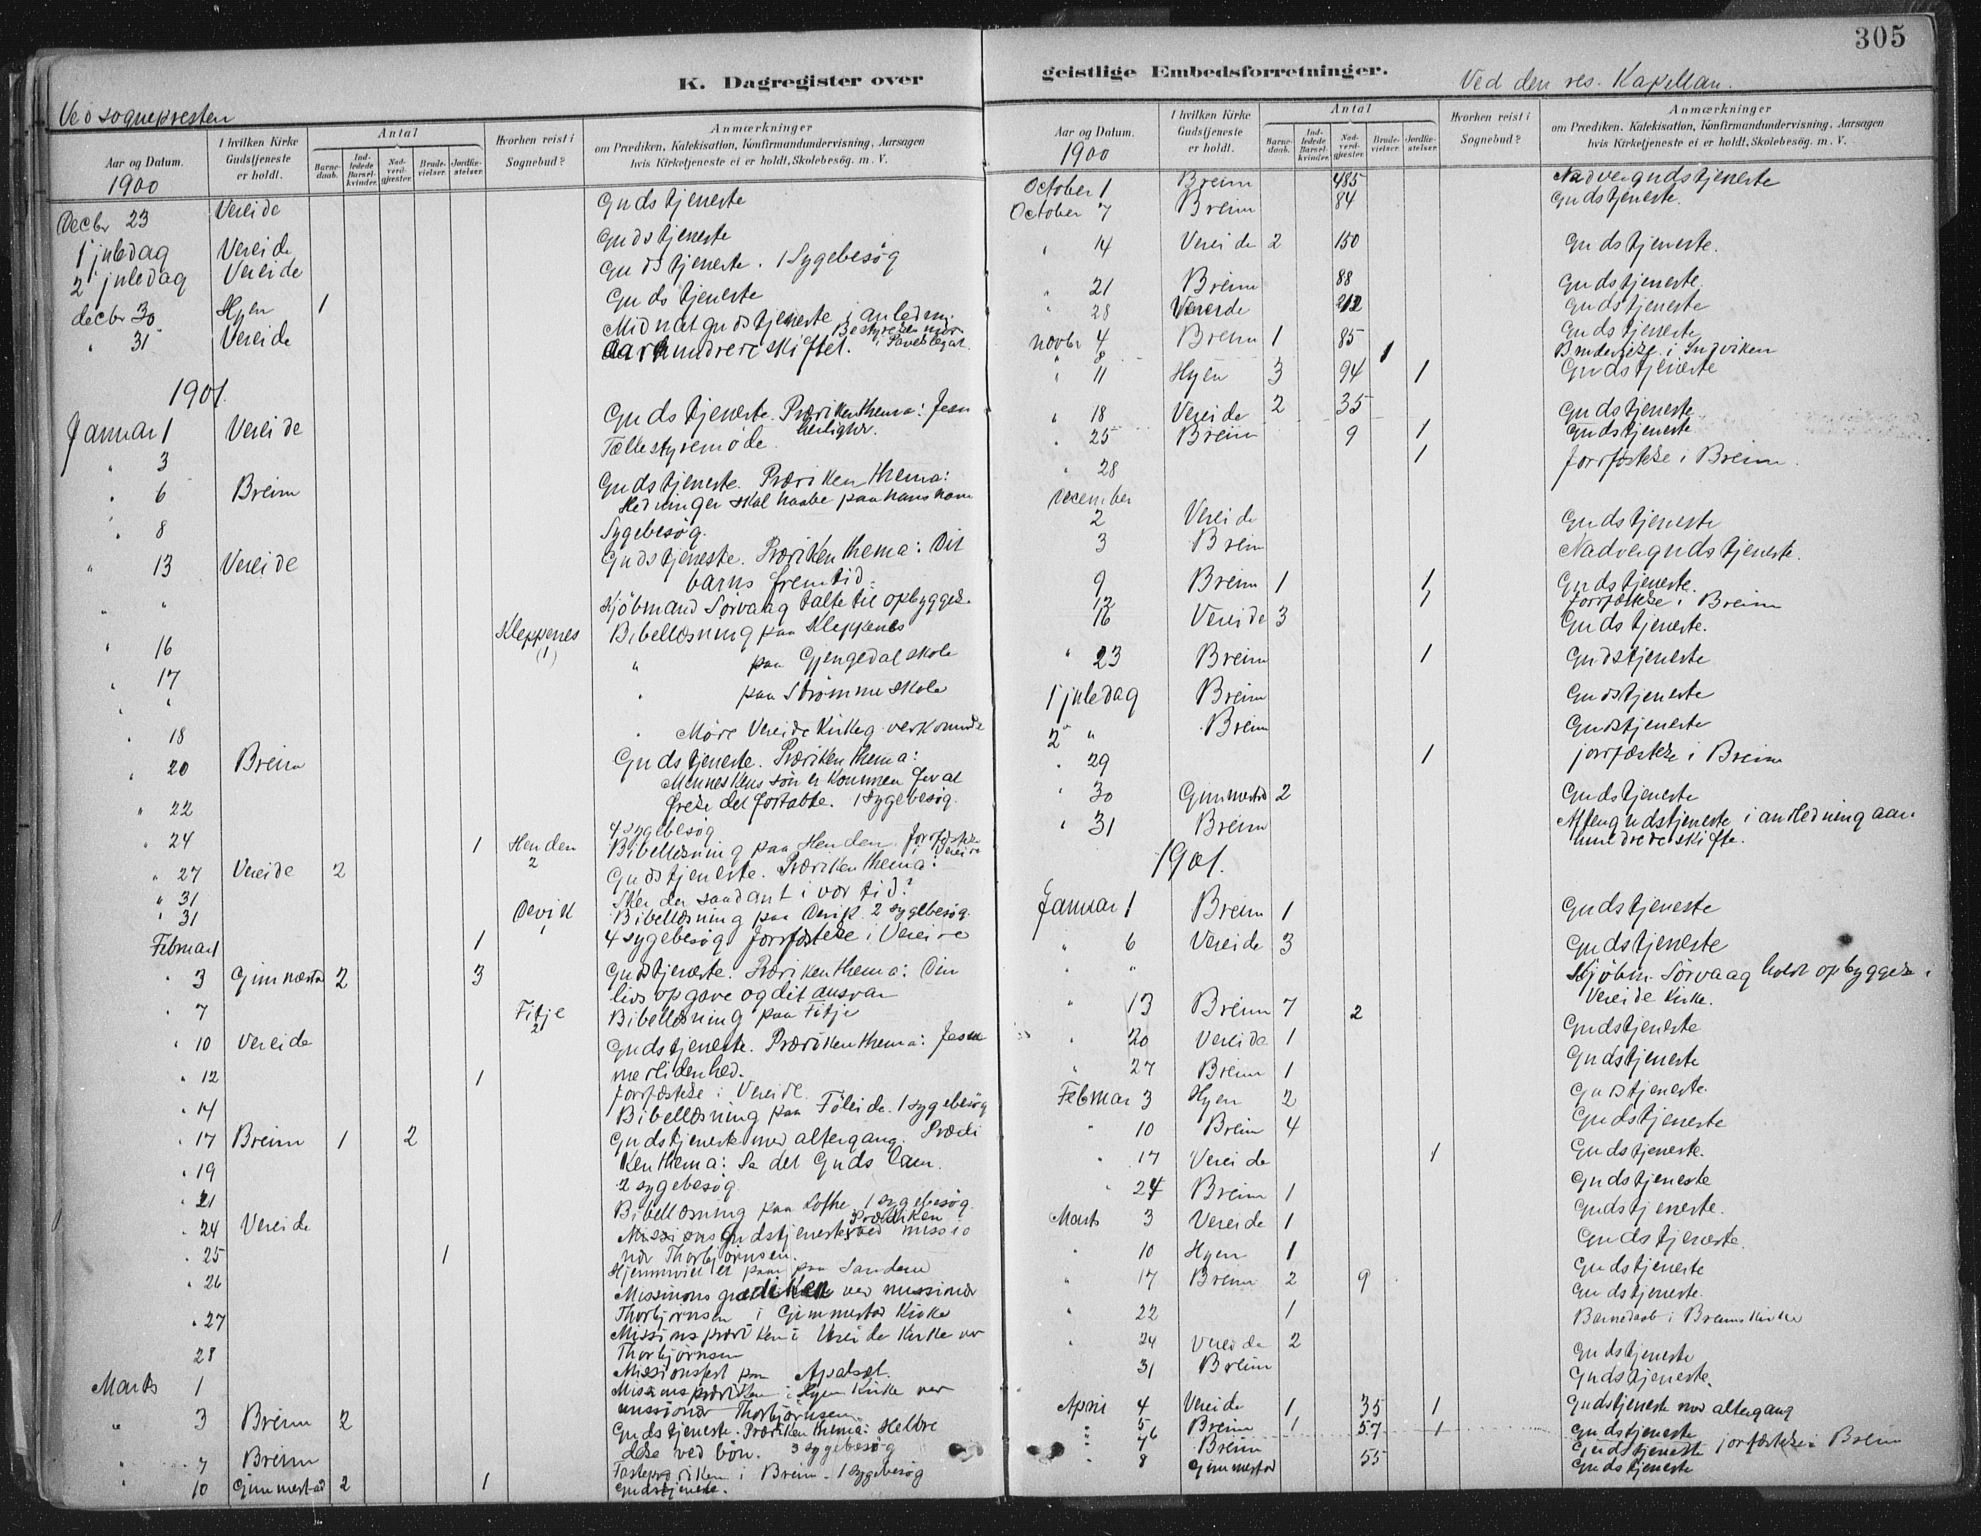 305
K. Dagregister over
geistlige Embedsforretninger.
Ved sognepresten
Ved den res. Kapellan.
Aar og Datum. I hvilken Kirke Gudstjeneste er holdt. Antal Barnedaab. Indledede Barselkvinder. Nadverdgjæster. Brudevielser. Jordfæstelser. Hvorhen reist i Sognebud? Anmærkninger om Prædiken, Katekisation, Konfirmandundervisning, Aarsagen hvis Kirketjeneste ei er holdt, Skolebesøg. m. V.
1900
Decbr 23 Vereide Gudstjeneste
1 juledag Vereide Gudstjeneste
2 juledag Vereide Gudstjeneste. 1 Sygebesøg
decbr 30 Hyen 1 Gudstjeneste
" 31 Vereide Midnatgudstjeneste i anledn.
aarhundredeskiftet.
1901.
Januar 1 Vereide Gudstjeneste. Prædikenthema: Jesu
herlighed.
" 3 Fællestyremöde.
" 6 Breim Gudstjeneste. Prædikenthema:
Hedninger skal haabe paa hans navn
" 8 Sygebesøg.
" 13 Vereide Gudstjeneste. Prædikenthema: Dit
barns fremtid.
" " Kjöbmand Sörvaag talte til opbyggelse
" 16 Kleppenes (1) Bibellæsning paa Kleppenes
" 17 " paa Gjengedal skole
" " " paa Strömme skole
" 18 " Möre Vereide Kirkeg. vedkomende
" 20 Breim Gudstjeneste. Prædikenthema:
Menneskens sön er kommen for at
frelse det fortabte. 1 sygebesøg.
" 22 4 sygebesøg
" 24 1 Henden 2 Bibellæsning paa Henden. Jordfæstelse i Vereide
" 27 Vereide 2 Gudstjeneste. Prædikenthema:
" 31 Sker der saadant i vor tid?
" 31 Devik 1 Bibellæsning paa Devik. 2 sygebesøg.
Februar 1 1 4 sygebesøg Jordfæstelse i Vereide
" 3 Gimmestad 2 3 Gudstjeneste. Prædikenthema: Din
livsopgave og dit ansvar
" 7 Fitje 2 Bibellæsning paa Fitje
" 10 Vereide Gudstjeneste. Prædikenthema: Jesu
medlidenhed.
" 12 1 Jordfæstelse i Vereide.
" 14 Bibellæsning paa Föleide. 1 sygebesøg
" 17 Breim 1 2 Gudstjeneste med altergang. Prædi
kenthema: Se det Guds Lam.
" 19 2 sygebesøg
" 21 Bibellæsning paa Lothe 1 sygebesøg.
" 24 Vereide Missionsgudstjeneste Prædiken ved missio
nær Thorbjörnsen.
" 25 1 Hjemmeviet et par paa Sandene
" 26 Missionsprædiken ved missionær
Thorbjörnsen i Gimmestad Kirke
" 27 Missionsprædiken i Vereide Kirke ved
Thorbjörnsen
28 Missionsfest paa Apalset.
Marts 1 Missionsprædiken i Hyen Kirke ved
missionær Thorbjörnsen.
" 3 Breim 2 Gudstjeneste. Prædikenthema: Helbre
delse ved bön. 3 sygebesøg
" 7 Breim Fasteprædiken i Breim. 1 sygebesøg
" 10 Gimmestad 2 1 Gudstjeneste.
Aar og Datum. I hvilken Kirke Gudstjeneste er holdt. Antal Barnedaab. Indledede Barselkvinder. Nadverdgjæster. Brudevielser. Jordfæstelser. Hvorhen reist i Sognebud? Anmærkninger om Prædiken, Katekisation, Konfirmandundervisning, Aarsagen hvis Kirketjeneste ei er holdt, Skolebesøg. m. V.
1900
October 1 Breim 485 Nadvergudstjeneste
October 7 Breim 84 Gudstjeneste.
" 14 Vereide 2 150 Gudstjeneste.
" 21 Breim 88 Gudstjeneste
" 28 Vereide 212 Gudstjeneste
Novbr 4 Breim 1 85 Gudstjeneste
" 8 1 Brudevielse i Indviken
" 11 Hyen 3 94 1 Gudstjeneste
" 18 Vereide 2 35 Gudstjeneste
" 25 Breim 9 1 Gudstjeneste
" 28 1 Jordfæstelse i Breim.
December
2 Vereide Gudstjeneste
3 Breim Nadvergudstjeneste.
9 Breim 1 1 Gudstjeneste.
12 1 Jordfæstelse i Breim
16 Vereide 3 Gudstjeneste.
" 23 Breim 1 Gudstjeneste
1 juledag Breim Gudstjeneste
2 " Breim Gudstjeneste
" 29 1 jordfæstelse i Breim
" 30 Gimmestad 2 Gudstjeneste
" 31 Breim Aftengudstjeneste i anledning aar-
hundredeskifte.
1901.
Januar 1 Breim 1 Gudstjeneste
" 6 Vereide 3 Gudstjeneste
" " Kjöbm. Sörvaag holdt opbyggelse i
Vereide Kirke.
" 13 Breim 7 2 Gudstjeneste
" 20 Vereide 1 Gudstjeneste
" 27 Breim 1 Gudstjeneste.
Februar 3 Hyen 2 Gudstjeneste
" 10 Breim 4 Gudstjeneste.
" 17 Vereide 1 Gudstjeneste
" 24 Breim 1 Gudstjeneste.
Marts 3 Vereide 1 Gudstjeneste.
" 10 Hyen 1 Gudstjeneste
" 17 Breim 2 9 Gudstjeneste.
" 22 1 Barnedaab i Breims Kirke
" 24 Vereide 2 Gudstjeneste
31 Breim Gudstjeneste.
April 4 Vereide 1 35 1 Gudstjeneste med altergang
" 5 Breim 1 57 1 Gudstjeneste
" Breim Gudstjeneste jordfæstelse i Breim
" 8 Gimmestad 55 Gudstjeneste